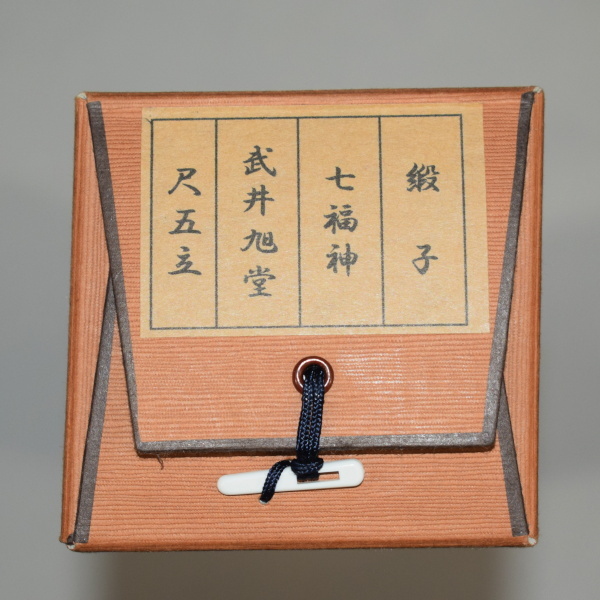 緞子
七福神
武井旭堂
尺五立